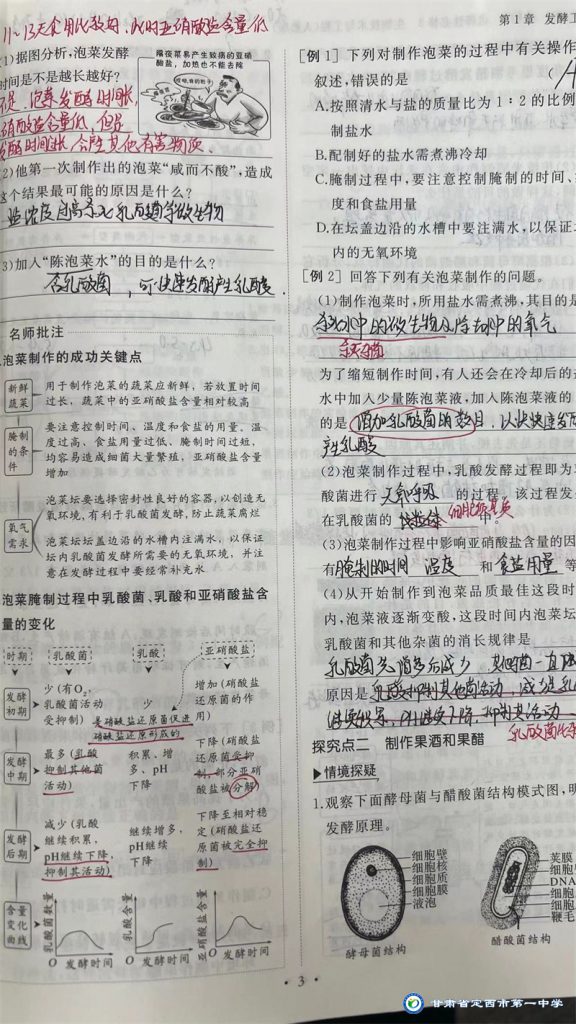 11~13天食用比较好，此时亚硝酸盐含量低
(1)据图分析,泡菜发酵
时间是不是越长越好?
隔夜菜易产生致病的亚硝
酸盐,加热也不能去除
不是,泡菜发酵时间长,
亚硝酸盐含量低,但是
发酵时间长,会产生其他有害物质。
(2)他第一次制作出的泡菜“咸而不酸”,造成
这个结果最可能的原因是什么?
盐浓度过高杀死乳酸菌等微生物
3)加入“陈泡菜水”的目的是什么?
含乳酸菌,可快速发酵产生乳酸。
名师批注
泡菜制作的成功关键点
新鲜
蔬菜
用于制作泡菜的蔬菜应新鲜,若放置时间
过长,蔬菜中的亚硝酸盐含量相对较高
腌制
的条
件
要注意控制时间、温度和食盐的用量。温
度过高、食盐用量过低、腌制时间过短,
均容易造成细菌大量繁殖,亚硝酸盐含量
增加
氧气
需求
泡菜坛要选择密封性良好的容器,以创造无
氧环境,有利于乳酸菌发酵,防止蔬菜腐烂
泡菜坛坛盖边沿的水槽内注满水,以保证
坛内乳酸菌发酵所需要的无氧环境,并注
意在发酵过程中要经常补充水
泡菜腌制过程中乳酸菌、乳酸和亚硝酸盐含
量的变化
时期 乳酸菌 乳酸 亚硝酸盐
发酵
初期
少(有O₂,
乳酸菌活动
受抑制)
少
增加(硝酸盐
还原菌的作
用)
是硝酸盐还原菌促进
硝酸盐还原形成的
发酵
中期
最多(乳酸
抑制其他菌
活动)
积累、增
多、pH
下降
下降(硝酸盐
还原菌受抑
制,部分亚硝
酸盐被分解)
发酵
后期
减少(乳酸
继续积累,
pH继续下降,
抑制其活动)
继续增多,
pH继续
下降
下降至相对稳
定(硝酸盐还
原菌被完全抑
制)
含量
变化
曲线
乳酸菌数量 O 发酵时间
乳酸含量 O 发酵时间
亚硝酸盐含量 O 发酵时间
第1章 发酵工
[例1] 下列对制作泡菜的过程中有关操作
叙述,错误的是 (A
A.按照清水与盐的质量比为1∶2的比例
制盐水
B.配制好的盐水需煮沸冷却
C.腌制过程中,要注意控制腌制的时间、
度和食盐用量
D.在坛盖边沿的水槽中要注满水,以保证
内的无氧环境
[例2] 回答下列有关泡菜制作的问题。
(1)制作泡菜时,所用盐水需煮沸,其目的是
杀死水中的微生物及除去水中的氧气
杀灭杂菌
为了缩短制作时间,有人还会在冷却后的盐
水中加入少量陈泡菜液,加入陈泡菜液的
的是增加乳酸菌的数目,以快速发
产生乳酸
(2)泡菜制作过程中,乳酸发酵过程即为乳
酸菌进行无氧呼吸的过程。该过程发
在乳酸菌的 细胞质基质 中。
(3)泡菜制作过程中影响亚硝酸盐含量的因
有腌制的时间 温度 和食盐用量 等
(4)从开始制作到泡菜品质最佳这段时
内,泡菜液逐渐变酸,这段时间内泡菜坛
乳酸菌和其他杂菌的消长规律是
乳酸菌先增多后减少,其他菌一直
原因是乳酸抑制其他菌活动,
继续积累,pH继续下降,抑制其活动
探究点二 制作果酒和果醋
▶情境探疑
1.观察下面酵母菌与醋酸菌结构模式图,明
发酵原理。
细胞壁
细胞核
细胞质
细胞膜
液泡
酵母菌结构
荚膜
细胞
DNA
细胞
细胞
鞭毛
醋酸菌结构
· 3 ·
甘肃省定西市第一中学